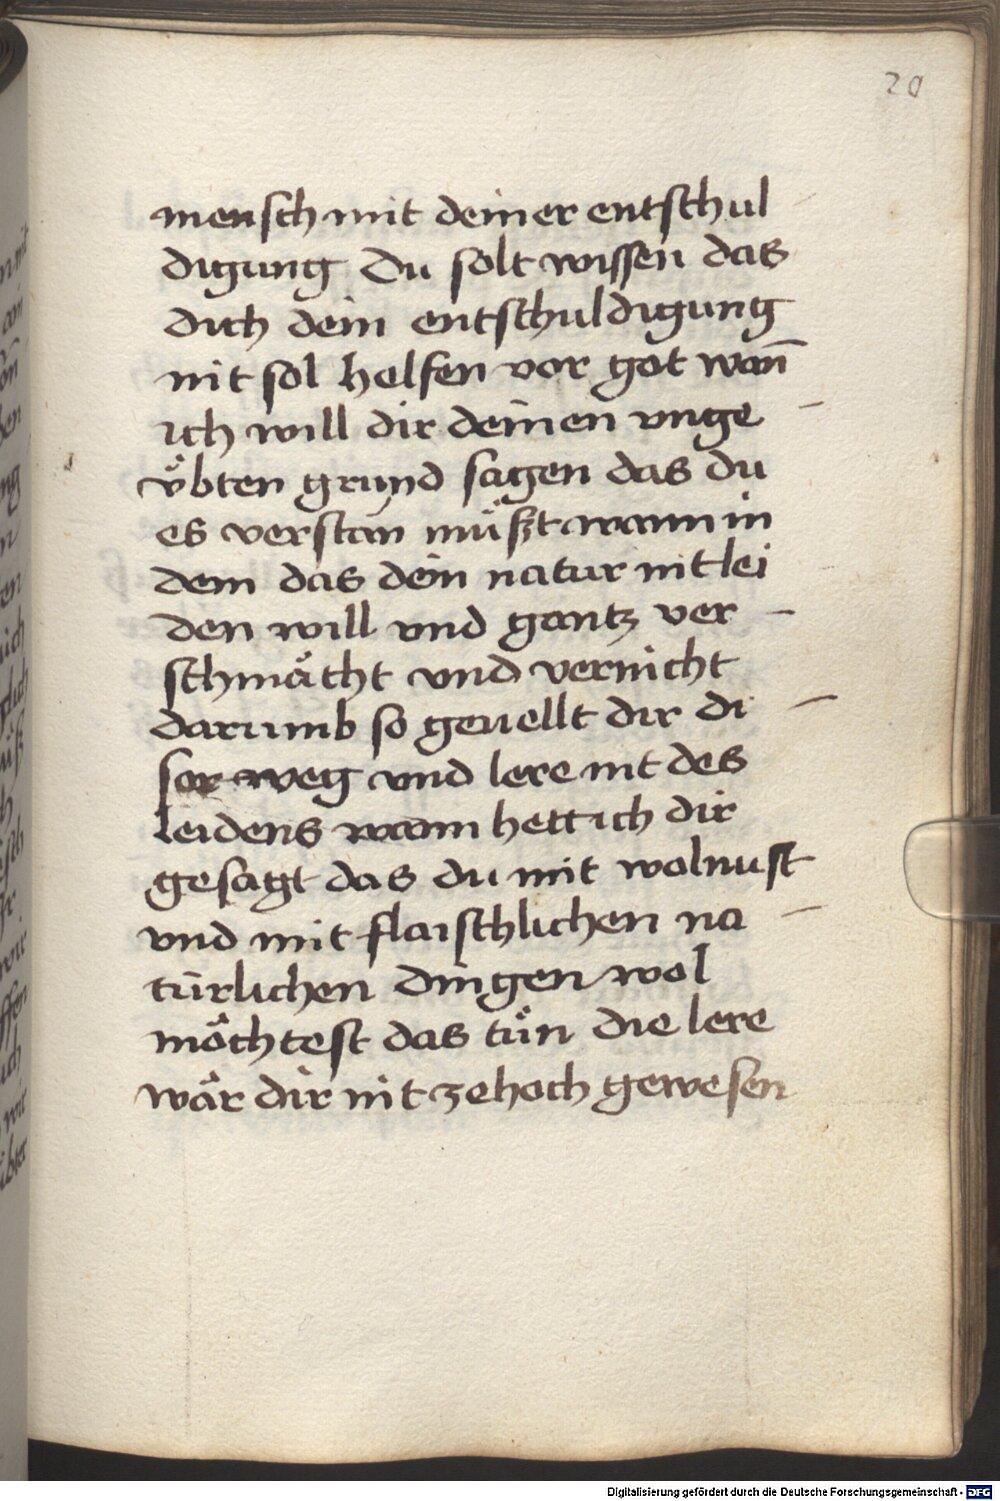 20
mensch mit deiner entschul
digung Du solt wissen das
dich dein entschuldigung
nit sol helfen vor got wan̄
ich will dir deinen vnge
v̈bten grund sagen das du
es verstan müßt wann in
dem das dein natur nit lei
den will vnd gantz ver
schmächt vnd vernicht
darumb so geuellt dir di
ser weg vnd lere nit des
leidens wann hett ich dir
gesagt das du mit wolnust
vnd mit flaischlichen na
türlichen dingen wol
möchtest das tün die lere
wär dir nit ze hoch gewesen
Digitalisierung gefördert durch die Deutsche Forschungsgemeinschaft - DFG